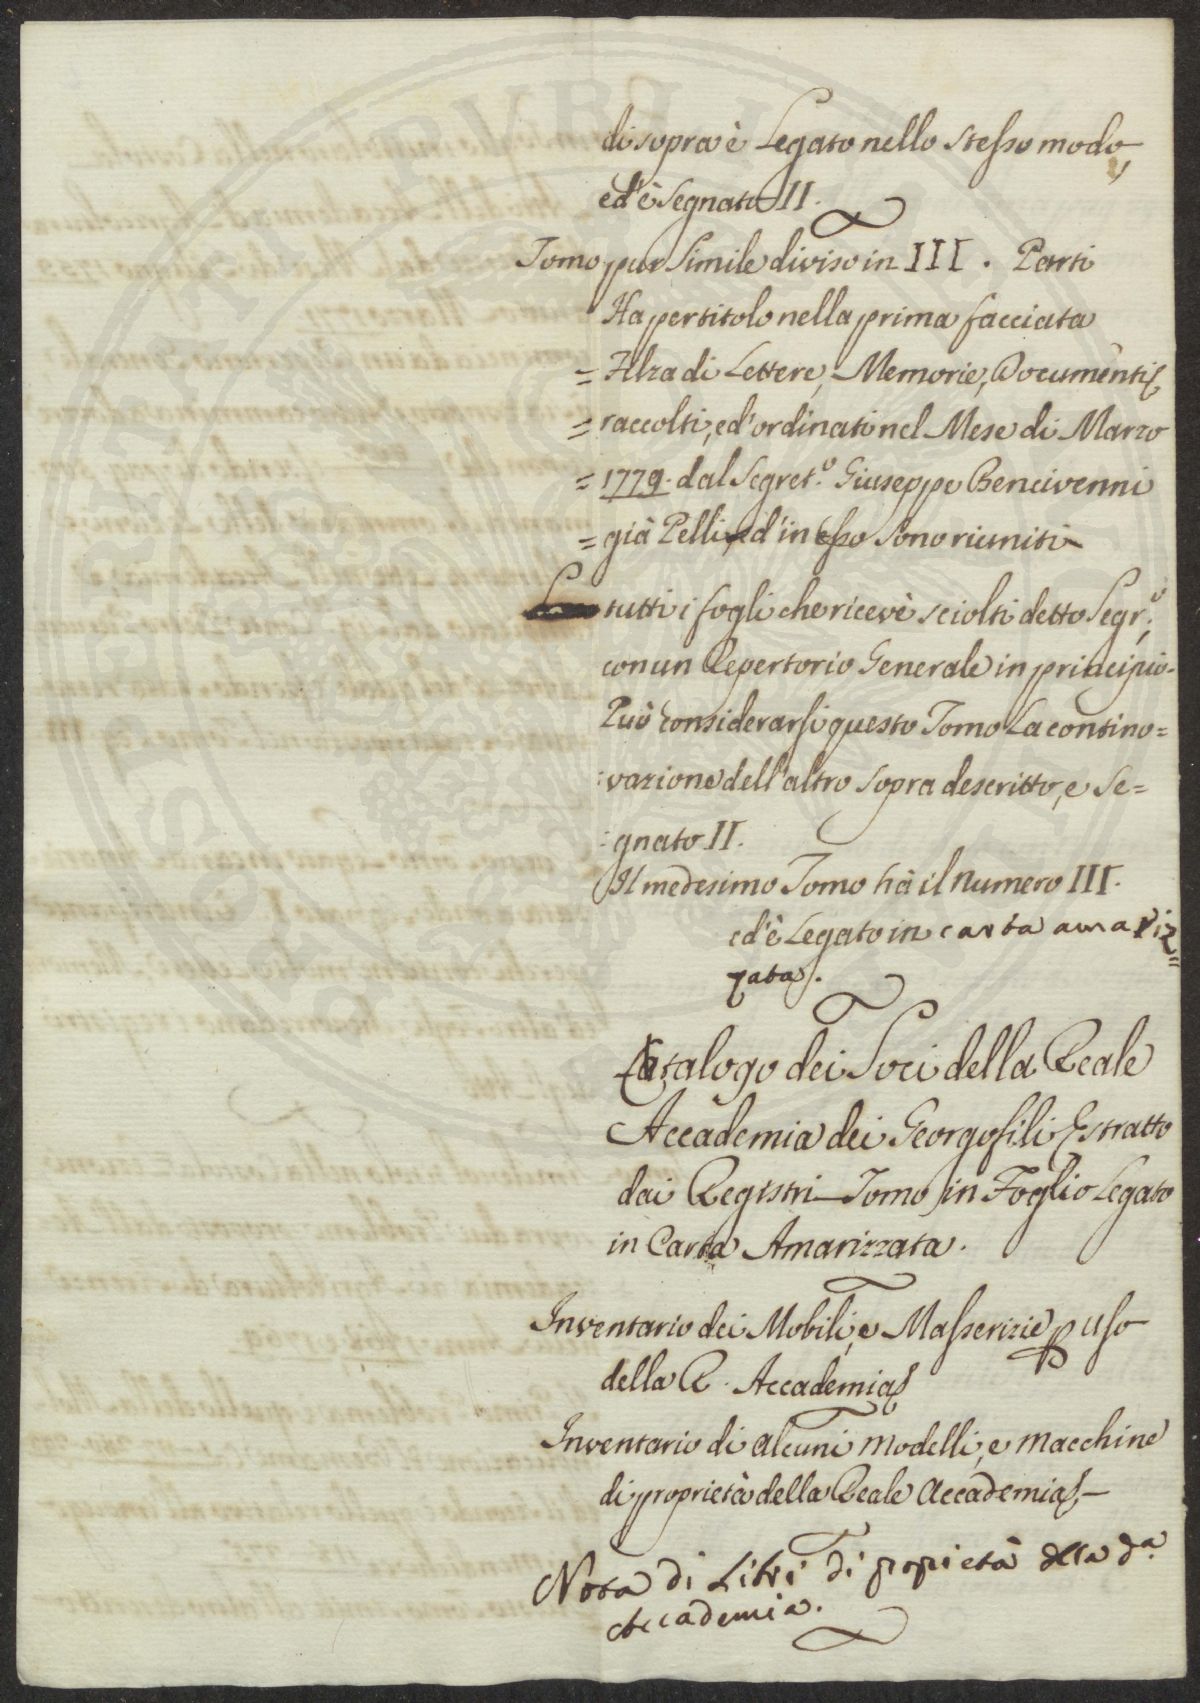 di sopra è Legato nello stesso modo,
ed'è Segnato II.
Tomo pur Simile diviso in III. Parti
Ha per titolo nella prima facciata
= Filza di Lettere, Memorie, Documenti
= raccolti, ed'ordinati nel Mese di Marzo
= 1779. dal Segret.o Giuseppe Bencivenni
= già Pelli, ed'in esso Sono riuniti
tutti i fogli che ricevè sciolti detto Segr.o,
con un Repertorio Generale in principio.
Può considerarsi questo Tomo La contino=
:vazione dell'altro sopra descritto, e Se=
:gnato II.
Il medesimo Tomo hà il numero III.
ed'è Legato in carta amariz=
zata.
Catalogo dei Soci della Reale
Accademia dei Georgofili Estratto
dai Registri Tomo in Foglio Legato
in Carta Amarizzata.
Inventario dei Mobili, e Masserizie p uso
della R. Accademia
Inventario di alcuni modelli, e macchine
di proprietà della Reale Accademia.
Nota di Libri di propietà della d.a
Accademia.